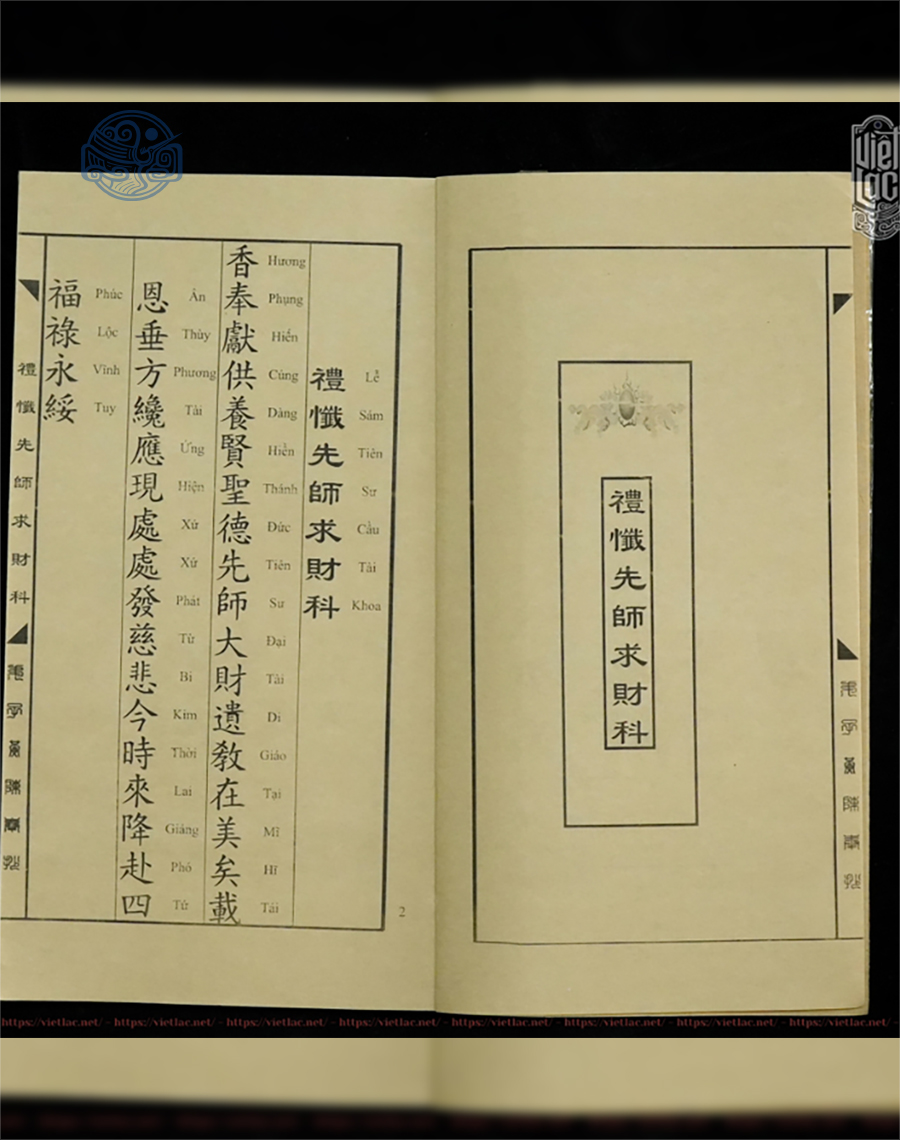 Việt Lạc
禮懺先師求財科
禮懺先師求財科
Lễ Sám Tiên Sư Cầu Tài Khoa
香奉獻供養賢聖德先師大財遺教在美矣載
Hương Phụng Hiến Cúng Dàng Hiền Thánh Đức Tiên Sư Đại Tài Di Giáo Tại Mĩ Hĩ Tái
恩垂方纔應現處處發慈悲今時來降赴四
Ân Thùy Phương Tài Ứng Hiện Xứ Xứ Phát Từ Bi Kim Thời Lai Giáng Phó Tứ
福祿永綏
Phúc Lộc Vĩnh Tuy
禮懺先師求財科
2
https://vietlac.net/ - https://vietlac.net/ - https://vietlac.net/ - https://vietlac.net/ - https://vietlac.net/ - https://vietlac.net/ - https://vietlac.net/ - https://vietlac.net/ -